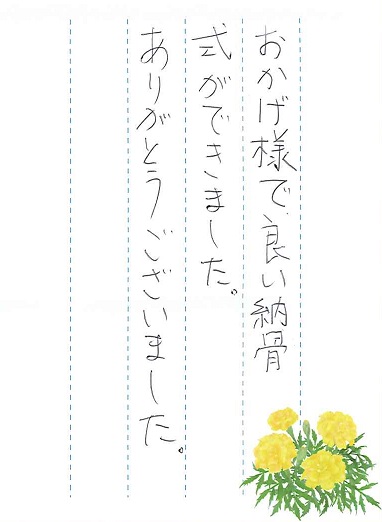 おかげ様で良い納骨
式ができました。
ありがとうございました。